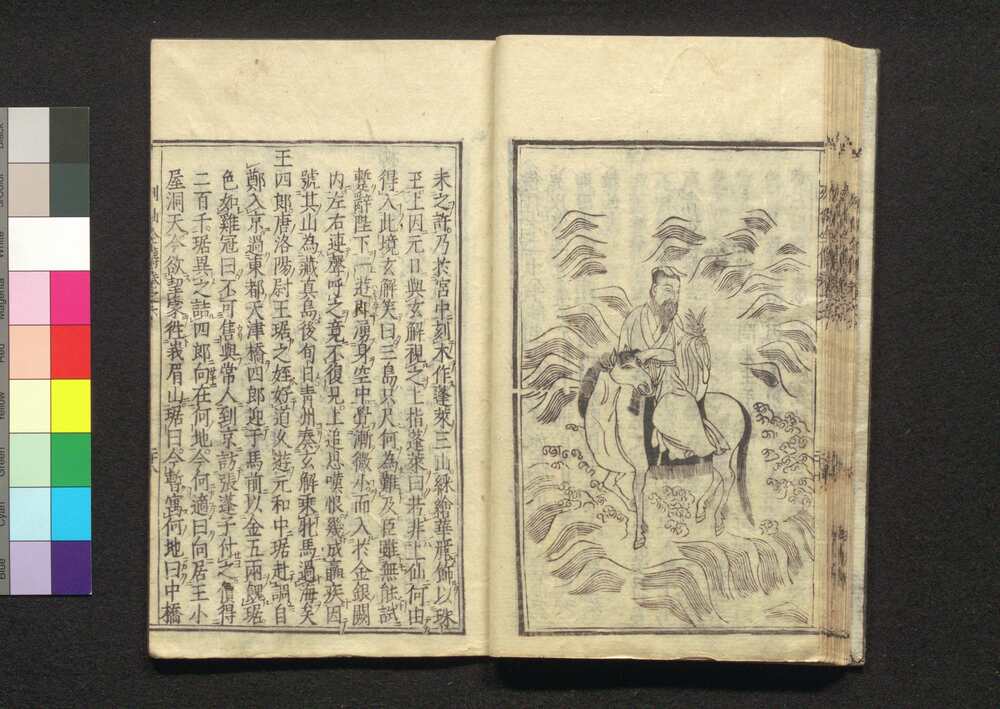 未之許乃於宮中刻木作蓬萊三山綵繪華麗飾以珠
玉上因元日與玄解視之上指蓬萊曰若非上仙何由
得入此境玄解笑曰三島咫尺何為難及臣雖無能試
暫辭陛下一遊即湧身空中覺漸微小而入於金銀闕
内左右連聲呼之竟不復見上追思嘆恨幾成羸疾因
號其山為藏真島後旬日青州奏玄解乘牝馬過海矣
王四郎唐洛陽尉王琚之姪好道久遊元和中琚赴調自
鄭入京過東都天津橋四郎迎于馬前以金五兩餽琚
色如雞冠曰不可售與常人到京訪張蓬子付之價得
二百千琚異之詰四郎向在何地今何適曰向居王小
屋洞天今欲挈家徃峩眉山琚曰今暫寓何地曰中橋
Black
White
Magenta
Red
Yellow
Green
Cyan
Blue